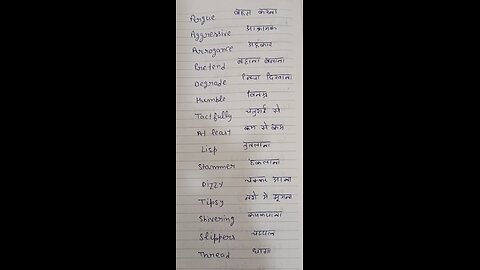 Argue बहस करना
Aggressive आक्रामक
Arrogance अहंकार
Pretend बहाना बनाना
Degrade निचा दिखाना
Humble विनम्र
Tactfully चतुराई से
At least कम से कम
Lisp तुतलाना
Stammer हकलाना
Dizzy चक्कर आना
Tipsy नशे में झूमना
Shivering कपकपाना
Slippers चप्पल
Thread धागा